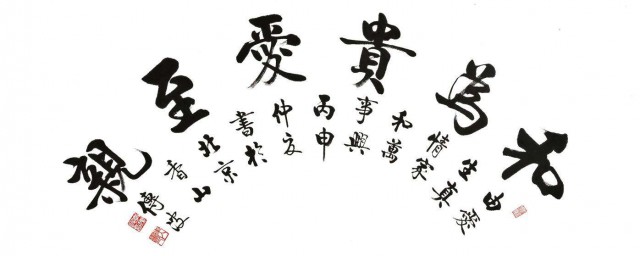 和為貴愛至親
由愛
生真
情家
和萬
事興
丙申
仲夏
書於
北京
香山
傅